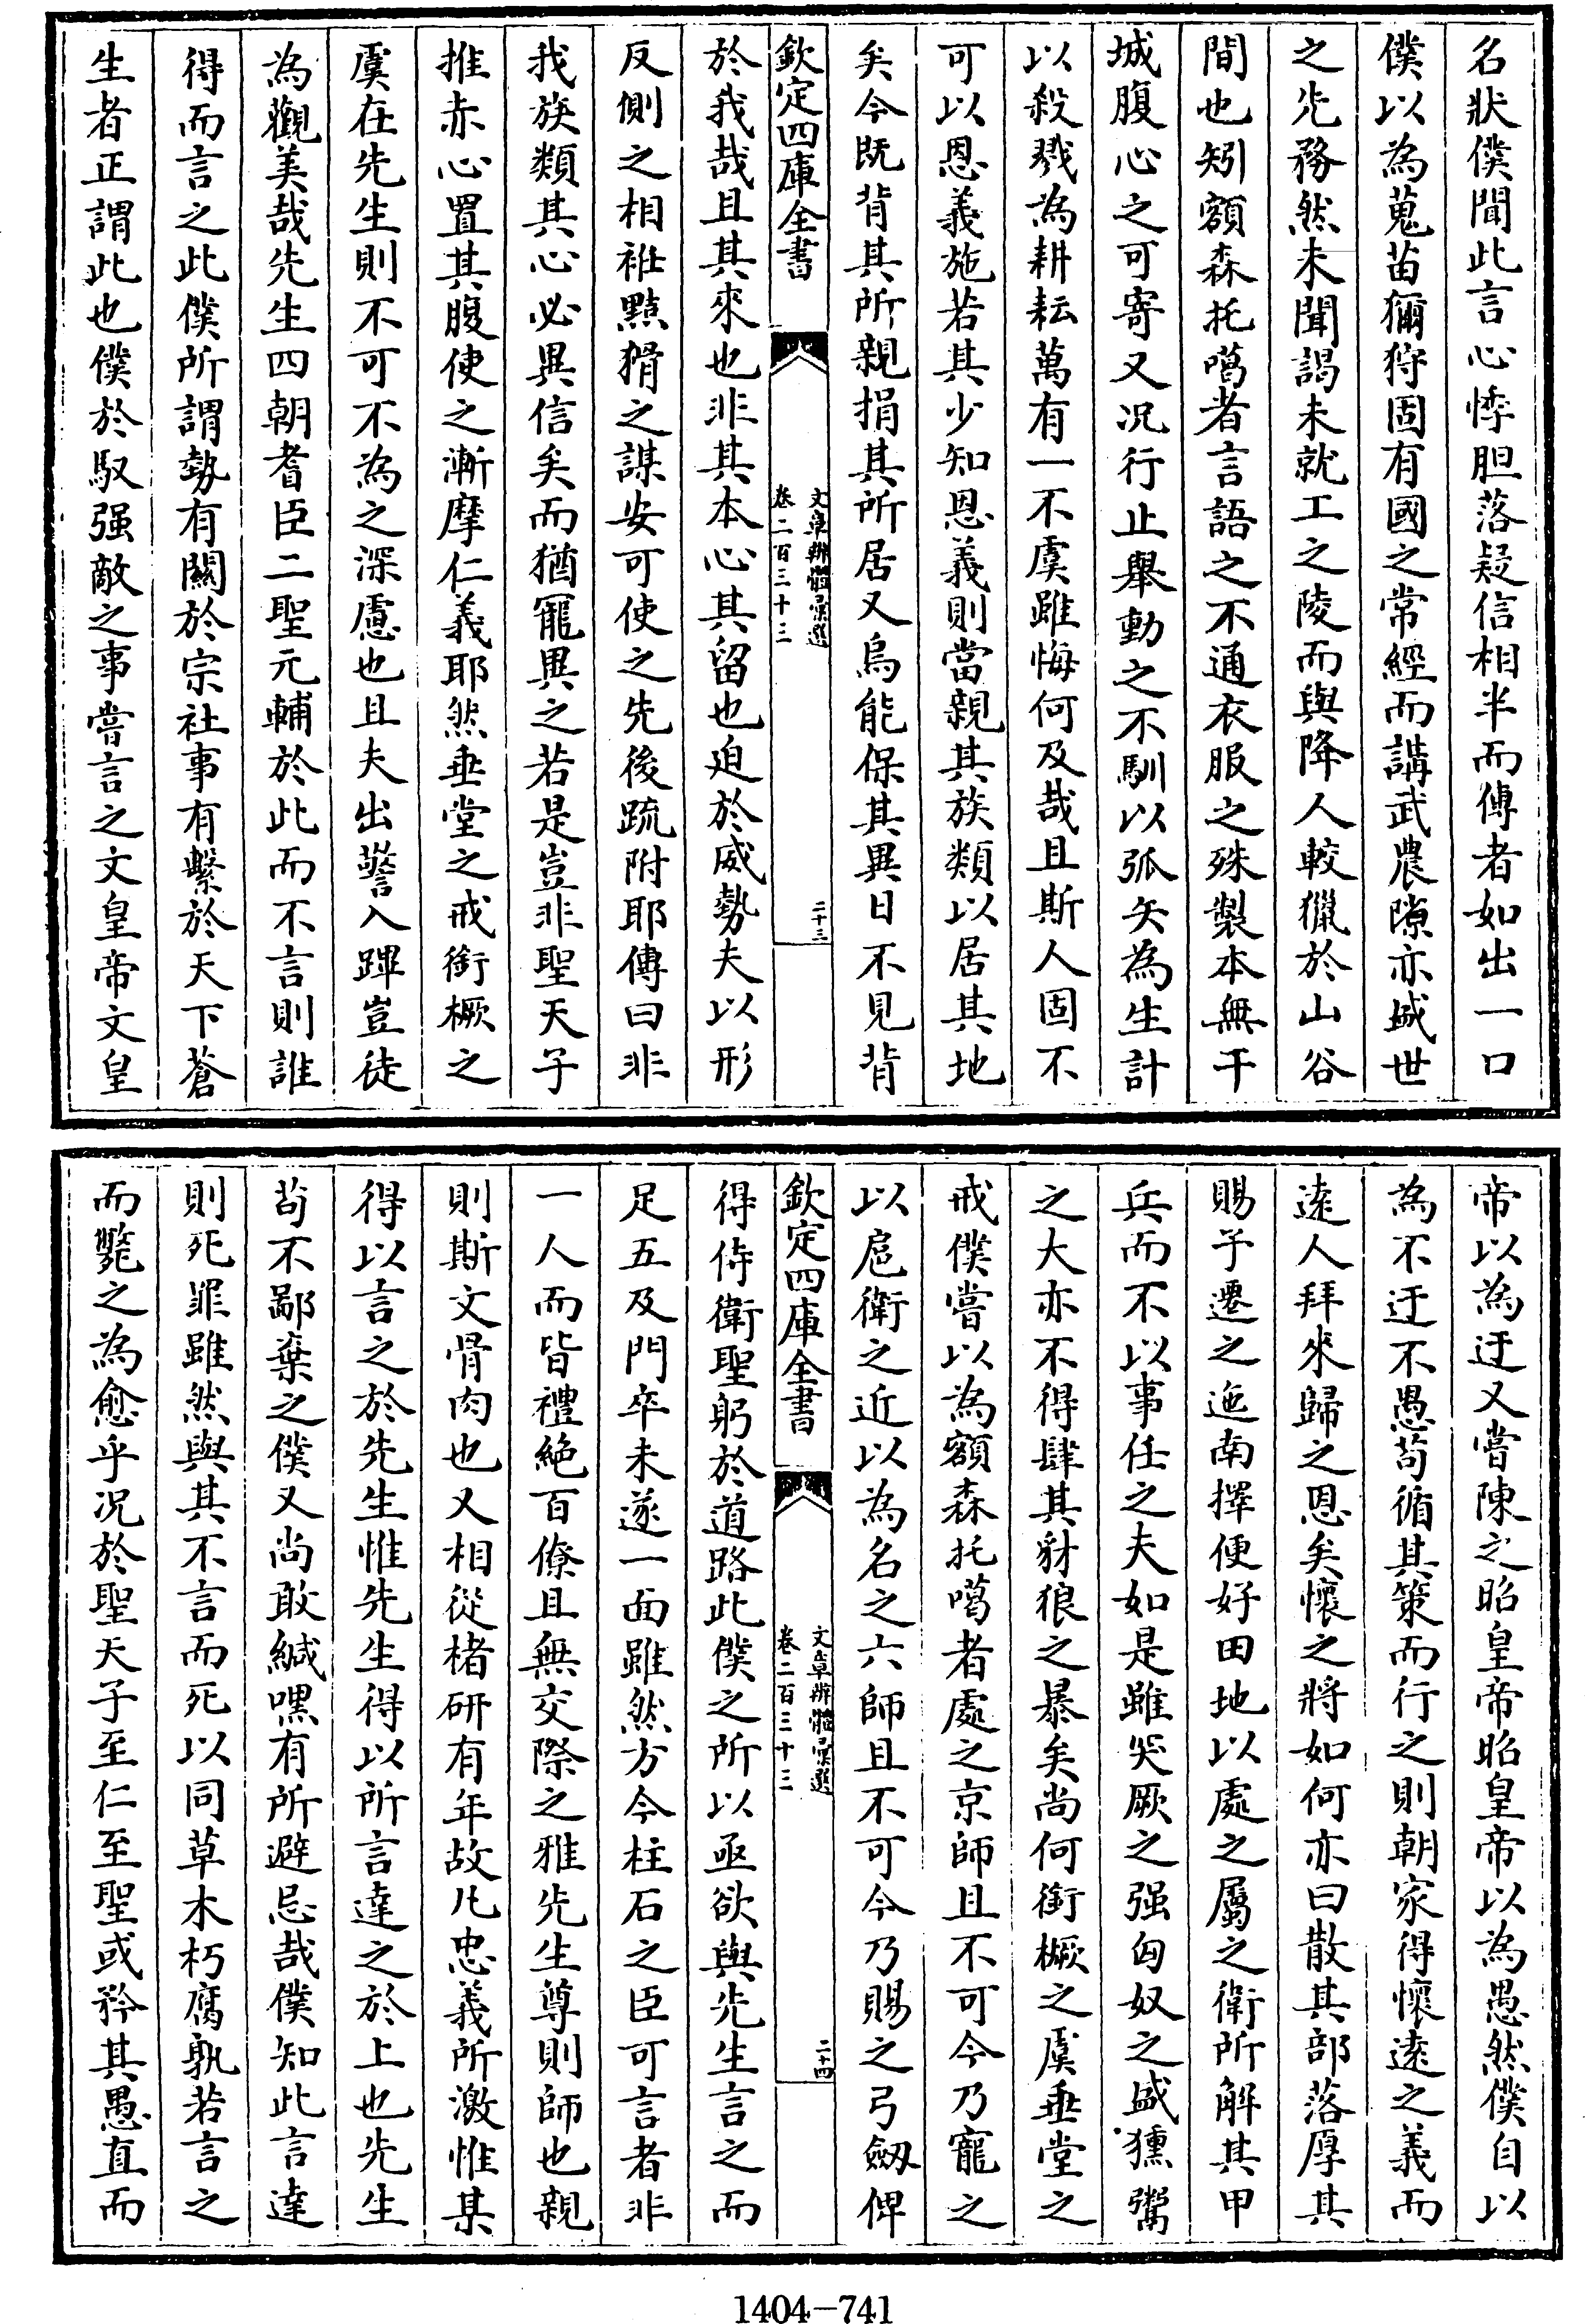 名狀僕聞此言心悸胆落疑信相半而傳者如出一口
僕以為蒐苗獮狩固有國之常經而講武農隙亦盛世
之先務然未聞謁未就工之陵而與降人較獵於山谷
間也矧額森托噶者言語之不通衣服之殊製本無干
城腹心之可寄又况行止舉動之不馴以弧矢為生計
以殺戮為耕耘萬有一不虞雖悔何及哉且斯人固不
可以恩義施若其少知恩義則當親其族類以居其地
矣今既背其所親捐其所居又烏能保其異日不見背
欽定四庫全書
文章辨體彙選
卷二百三十三
二十三
於我哉且其來也非其本心其留也迫於威勢夫以形
反側之相雜黠猾之謀安可使之先後疏附耶傳曰非
我族類其心必異信矣而猶寵異之若是豈非聖天子
推赤心置其腹使之漸摩仁義耶然垂堂之戒銜橛之
虞在先生則不可不為之深慮也且夫出警入蹕豈徒
為觀美哉先生四朝耆臣二聖元輔於此而不言則誰
得而言之此僕所謂勢有關於宗社事有繫於天下蒼
生者正謂此也僕於馭强敵之事嘗言之文皇帝文皇
帝以為迂又嘗陳之昭皇帝昭皇帝以為愚然僕自以
為不迂不愚苟循其策而行之則朝家得懷遠之義而
遠人拜來歸之恩矣懷之將如何亦曰散其部落厚其
賜予遷之迤南擇便好田地以處之屬之衛所解其甲
兵而不以事任之夫如是雖突厥之强匈奴之盛獯鬻
之大亦不得肆其豺狼之暴矣尚何銜橛之虞垂堂之
戒僕嘗以為額森托噶者處之京師且不可今乃寵之
以扈衛之近以為名之六師且不可今乃賜之弓劔俾
欽定四庫全書
文章辨體彙選
卷二百三十三
二十四
得侍衛聖躬於道路此僕之所以亟欲與先生言之而
足五及門卒未遂一面雖然方今柱石之臣可言者非
一人而皆禮絶百僚且無交際之雅先生尊則師也親
則斯文骨肉也又相從楮研有年故凡忠義所激惟某
得以言之於先生惟先生得以所言達之於上也先生
苟不鄙棄之僕又尚敢緘嘿有所避忌哉僕知此言達
則死罪雖然與其不言而死以同草木朽腐孰若言之
而斃之為愈乎况於聖天子至仁至聖或矜其愚直而
1404-741